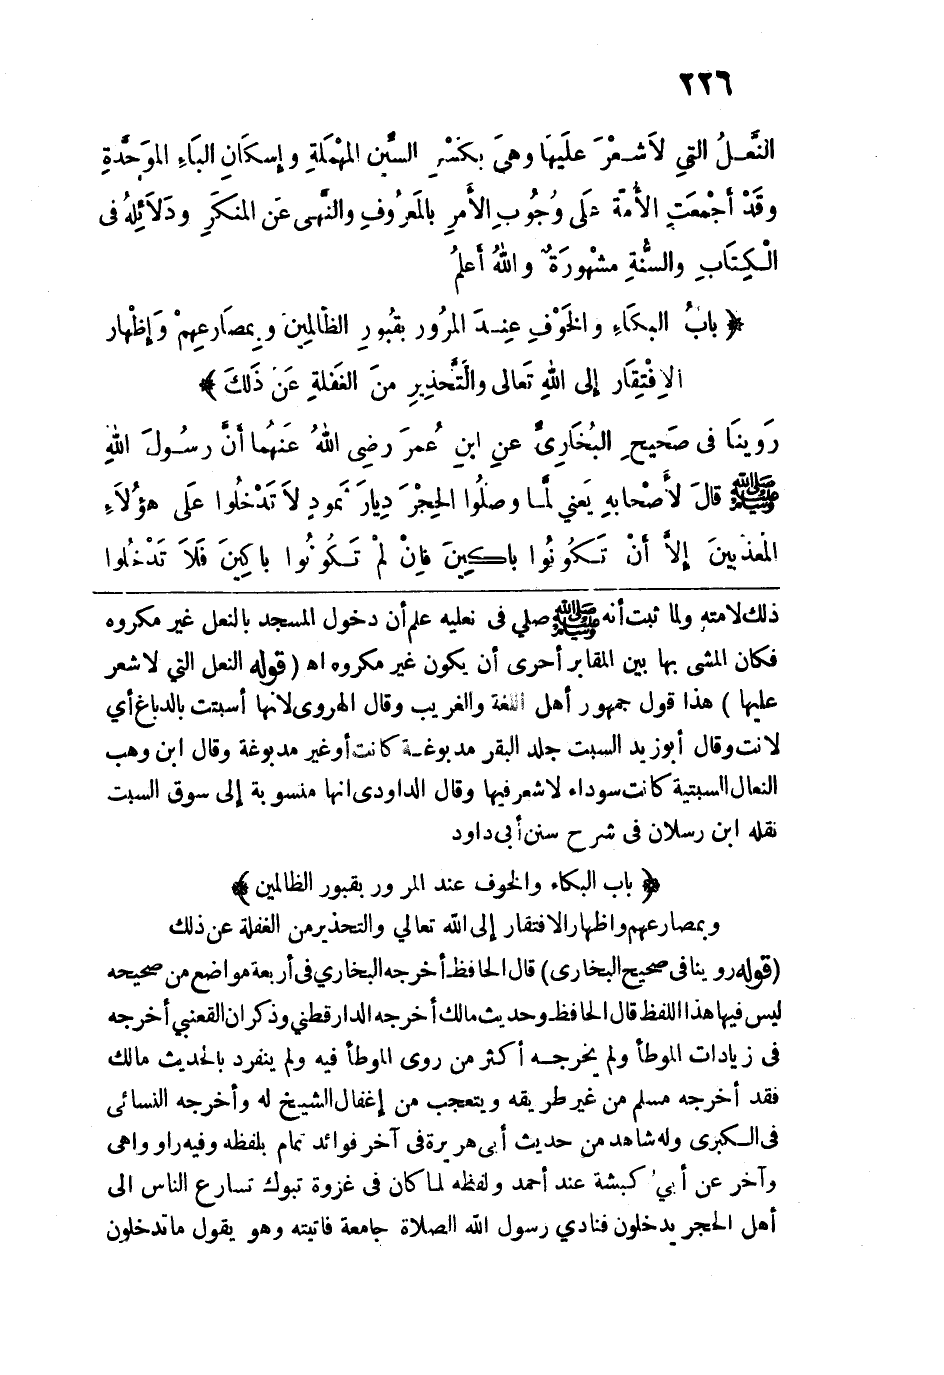 ٢٢٦
النَّعْلُ التي لاَ شَعْرَ علَيهَا وهيَ بكَسْرِ السِّينِ المهْمَلَةِ وإسكَانِ البَاءِ الموَحَّدةِ
وقَدْ أجْمعَتِ الأمَّةُ علَى وُجُوبِ الأَمرِ بالمَعرُوفِ والنَّهى عَن المنكَرِ ودَلَائِلهُ فى
الْكِتَابِ والسُّنَّةِ مشْهُورَةٌ واللهُ أَعلمُ
﴿ بابُ البكَاءِ والخَوْفِ عِنْدَ المرُور بقبُورِ الظالِمِينَ وبِمصَارعِهِمْ وَإظْهار
الاِفْتِقَار إلى اللهِ تَعالى والتَّحْذِيرِ منَ الغَفلَةِ عَنْ ذَلكَ ﴾
رَوينَا فى صَحيحِ البُخَارِىِّ عنِ ابنِ عُمرَ رضِى اللهُ عَنهُما أنَّ رسُولَ اللهِ
ﷺ قالَ لأَصْحابهِ يَعني لمَّا وصَلُوا الحِجْرَ دِيارَ ثمودٍ لاَ تَدْخُلوا علَى هؤُلاَءِ
المعَذبينَ إلاَّ أنْ تَكُونُوا باكِينَ فإنْ لمْ تَكُونُوا باكِينَ فَلاَ تَدْخُلوا
ذلك لامته ولما ثبت أنه ﷺ صلي فى نعليه علم أن دخول المسجد بالنعل غير مكروه
فكان المشى بها بين المقابر أحرى أن يكون غير مكروه اه ( قوله النعل التي لا شعر
عليها ) هذا قول جمهور أهل اللغة والغريب وقال الهروى لانها أسبتت بالدباغ أي
لانت وقال أبوزيد السبت جلد البقر مدبوغة كانت أو غير مدبوغة وقال ابن وهب
النعال السبتية كانت سوداء لا شعر فيها وقال الداودى انها منسوبة إلى سوق السبت
نقله ابن رسلان فى شرح سنن أبى داود
﴿ باب البكاء والخوف عند المرور بقبور الظالمين ﴾
وبمصارعهم واظهار الافتقار إلى الله تعالي والتحذير من الغفلة عن ذلك
(قوله روينا فى صحيح البخارى) قال الحافظ أخرجه البخاري فى أربعة مواضع من صحيحه
ليس فيها هذا اللفظ قال الحافظ وحديث مالك أخرجه الدارقطني وذكر ان القعنبي أخرجه
فى زيادات الموطأ ولم يخرجه أكثر من روى الموطأ فيه ولم ينفرد بالحديث مالك
فقد أخرجه مسلم من غير طريقه ويتعجب من إغفال الشيخ له وأخرجه النسائى
فى الكبرى وله شاهد من حديث أبى هريرة فى آخر فوائد تمام بلفظه وفيه راو واهى
وآخر عن أبي كبشة عند أحمد ولفظه لما كان فى غزوة تبوك تسارع الناس الى
أهل الحجر يدخلون فنادي رسول الله الصلاة جامعة فاتيته وهو يقول ما تدخلون